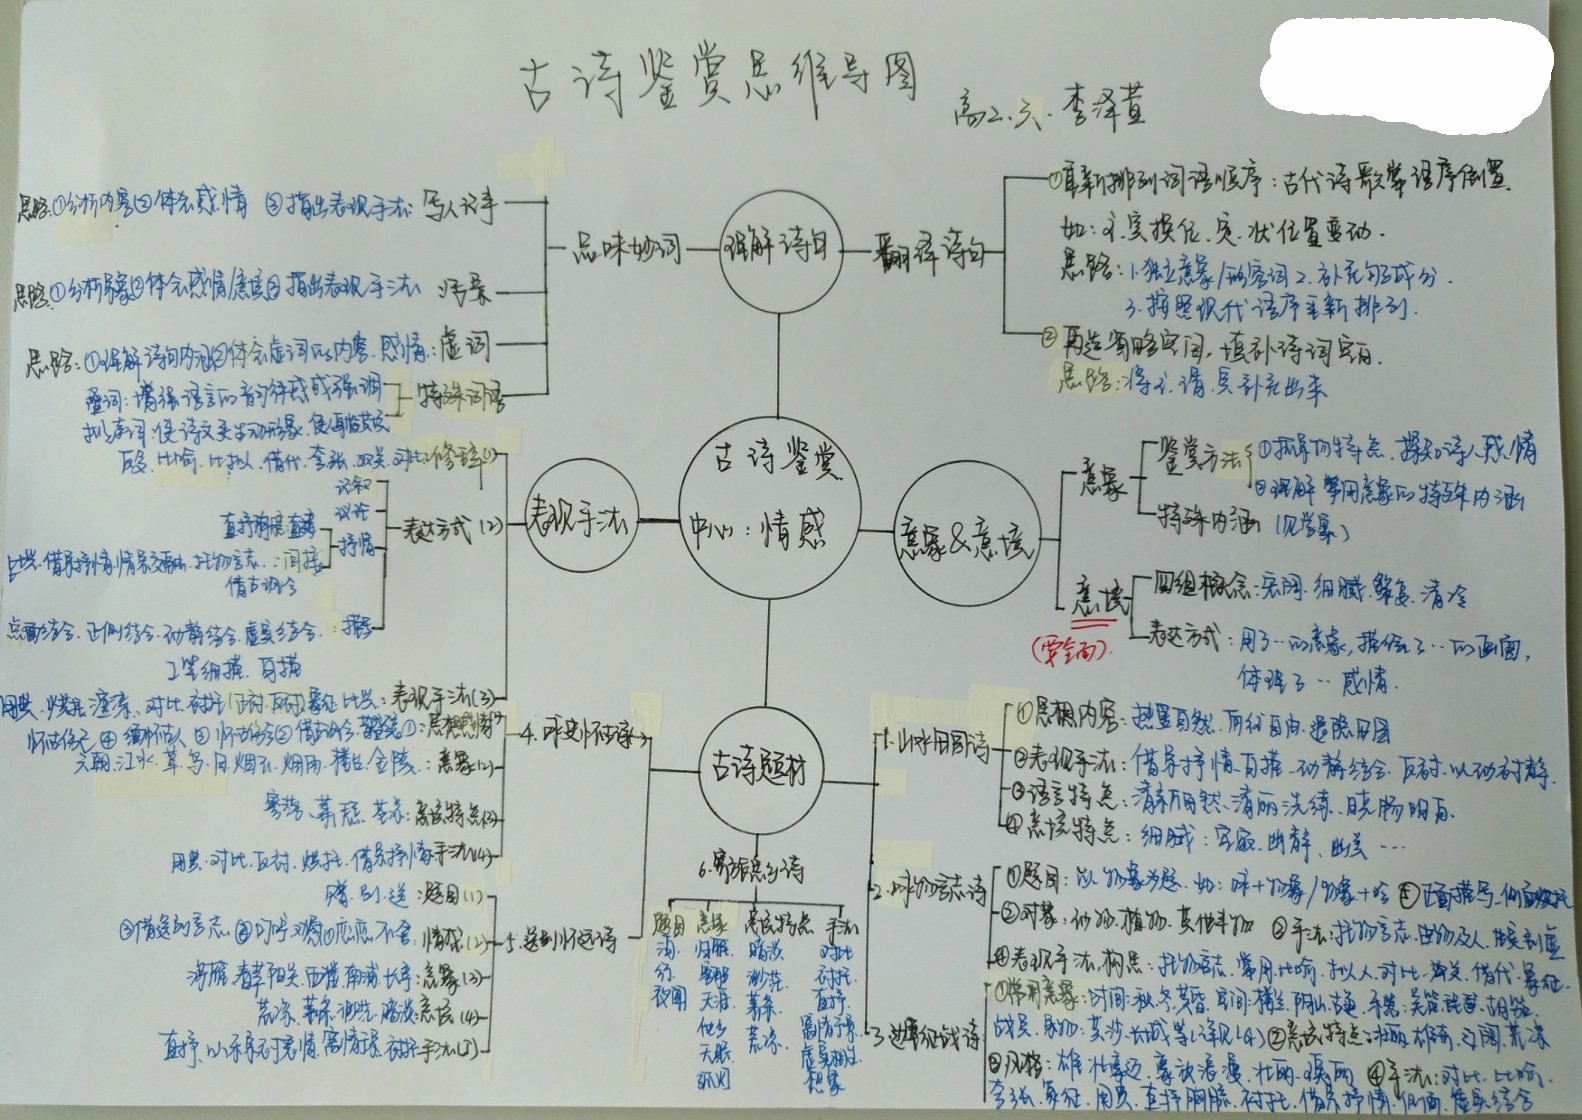 古诗鉴赏思维导图
高二.六.李泽萱
古诗鉴赏
中心:情感
理解诗句
品味妙词
写人记事
思路:①分析内容②体会感情 ③指出表现手法:
写景
思路:①分析景象②体会感情/意境③指出表现手法
虚词
思路:①理解诗句内涵②体会虚词的内容.感情:
特殊词语
叠词:增强语言的音韵
拟声词:使诗文更生动形象
翻译诗句
①重新排列词语顺序:古代诗歌常语序倒置.
如:主.宾换位.宾.状位置变动.
思路:1.独立意象/形容词 2.补充句子成分.
3.按照现代语序重新排列.
②再造省略空间,填补诗词空白.
思路:将主.谓.宾补充出来
意象&意境
意象
鉴赏方法
①抓景物特点,探知诗人感情
②理解常用意象的特殊内涵
特殊内涵(见学案)
意境
(要全面).
四组概念:宏阔.细腻.繁复.清冷
表达方式:用了…的意象,描绘了…的画面,
体现了…感情.
表现手法
修辞(1)
反复.比喻.比拟人.借代.夸张.双关.对比:
表达方式(2)
记叙
议论
抒情
直抒胸臆:直接
借景抒情.情景交融.托物言志.:间接
借古讽今
点面结合.正侧结合.动静结合.虚实结合.:描写
工笔细描.白描
表现手法(3)
用典.烘托.渲染.对比.衬托(正衬.反衬)象征.比兴:
古诗题材
1.山水田园诗
①思想内容:热爱自然.向往自由.退隐田园
②表现手法:借景抒情.白描.动静结合.反衬.以动衬静.
③语言特点:清新自然、清丽洗练、晓畅明白.
④意境特点:细腻:宁寂.幽静、幽美…
2.咏物言志诗
①题目:以物象为题.如:咏+物象/物象+吟
⑤正面描写.侧面烘托
②对象:动物.植物.其他事物
③手法:托物言志.由物及人.
④表现手法.构思:托物言志.常用比喻.拟人.对比.双关.借代.象征.
3.边塞征战诗
①常用意象:时间:秋.冬.黄昏.空间:楼兰.阴山.
②意境特点:壮丽.雄奇.辽阔.荒凉
③风格:雄壮豪迈.豪放浪漫.壮丽.瑰丽
④手法:对比.比喻.
夸张.象征.用典.直抒胸臆.衬托.借景抒情.侧面.虚实结合
4.咏史怀古诗
思想感情(1)
意象(2)
六朝.江水.草.鸟.月.烟云.烟雨.楼台.金陵.:
意境特点(3)
手法(4)
用典.对比.反衬.烘托.借景抒情
5.送别怀远诗
赠.别.送:题目(1)
③借送别言志.④叮咛.劝勉①恋恋不舍.情感(2)
鸿雁.春草.阳关.西楼.南浦.长亭:意象(3)
荒凉.萧条.迷茫.暗淡:意境(4)
直抒.以乐景衬哀情.寓情于景.衬托:手法(5)
6.羁旅思乡诗
题目
夜闻
意象
归雁
天涯
他乡
孤灯
意境特点
暗淡
渺茫
萧条
荒凉
手法
对比
衬托
直抒
寓情于景
虚实相生
想象